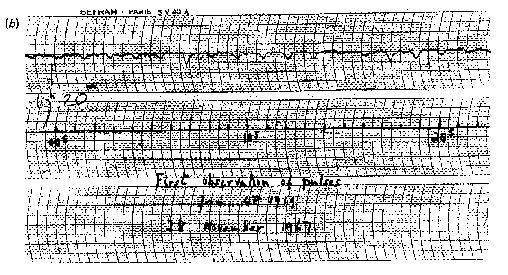 (b)
DEFRAM - PARIS SV 40 A
20ᵐ
00ˢ 10ˢ 20ˢ
First observation of pulses
from CP 1919
28 November 1967